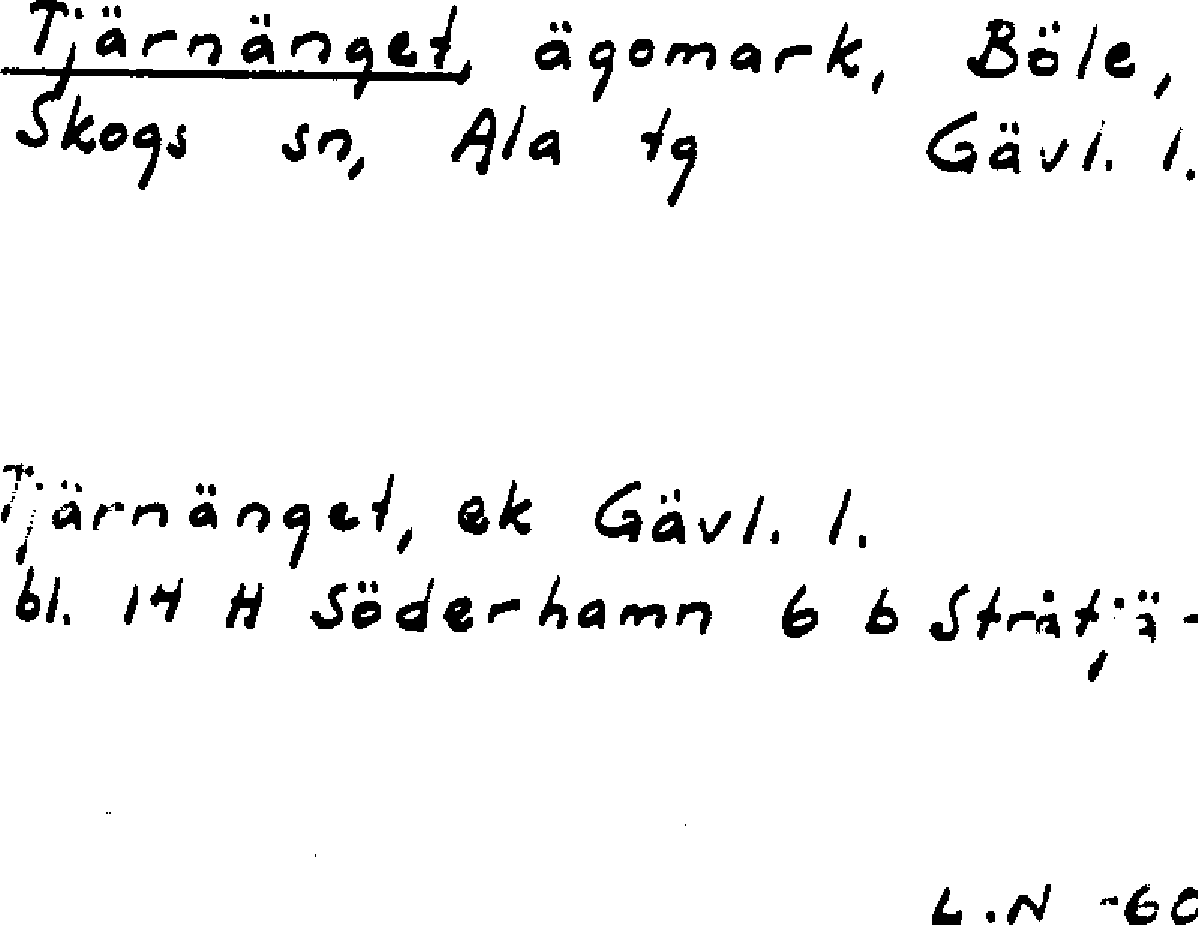 Tjärnänget, ägomark, Böle,
Skogs sn, Ala tg Gävl. l.
Tjärnänget, ek Gävl. l.
bl. 14 H Söderhamn 6 b Stråtjä-
L.N -60